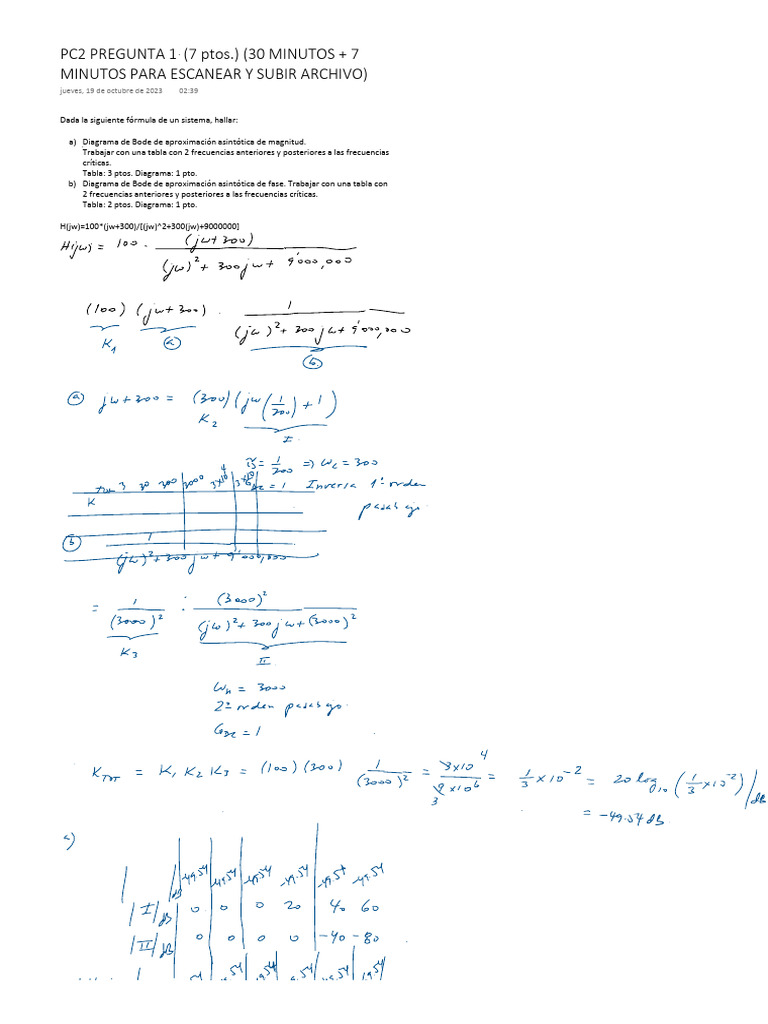 PC2 PREGUNTA 1· (7 ptos.) (30 MINUTOS + 7
MINUTOS PARA ESCANEAR Y SUBIR ARCHIVO)
jueves, 19 de octubre de 2023 02:39
Dada la siguiente fórmula de un sistema, hallar:
a) Diagrama de Bode de aproximación asintótica de magnitud.
Trabajar con una tabla con 2 frecuencias anteriores y posteriores a las frecuencias
críticas.
Tabla: 3 ptos. Diagrama: 1 pto.
b) Diagrama de Bode de aproximación asintótica de fase. Trabajar con una tabla con
2 frecuencias anteriores y posteriores a las frecuencias críticas.
Tabla: 2 ptos. Diagrama: 1 pto.
H(jw)=100*(jw+300)/[(jw)^2+300(jw)+9000000]
H(jw) = 100 · (jw+300) / (jw)² + 300jw + 9'000,000
(100) (jw+300) · 1 / (jw)² + 300jw + 9'000,000
K₁ (a) (b)
(a) jw+300 = (300) (jw (1/300) + 1)
K₂ I
= 1/300 => ωc = 300
3 30 300 3000 3x10⁴
= 1 Inversa 1º orden
K
pasabajo
(b) 1 / (jw)² + 300jw + 9'000,000
= 1/(3000)² · (3000)² / (jw)² + 300jw + (3000)²
K₃ II
ωn = 3000
2º orden pasabajo
= 1
K = K₁ K₂ K₃ = (100) (300) 1/(3000)² = 3x10⁴ / 9x10⁶ = 1/3 x10⁻² = 20 log₁₀ (1/3 x10⁻²)/dB
3
= -49.54 dB
a)
dB -49.54 -49.54 -49.54 -49.54 -49.54 -49.54
|I|dB 0 0 0 20 40 60
|II|dB 0 0 0 0 -40 -80